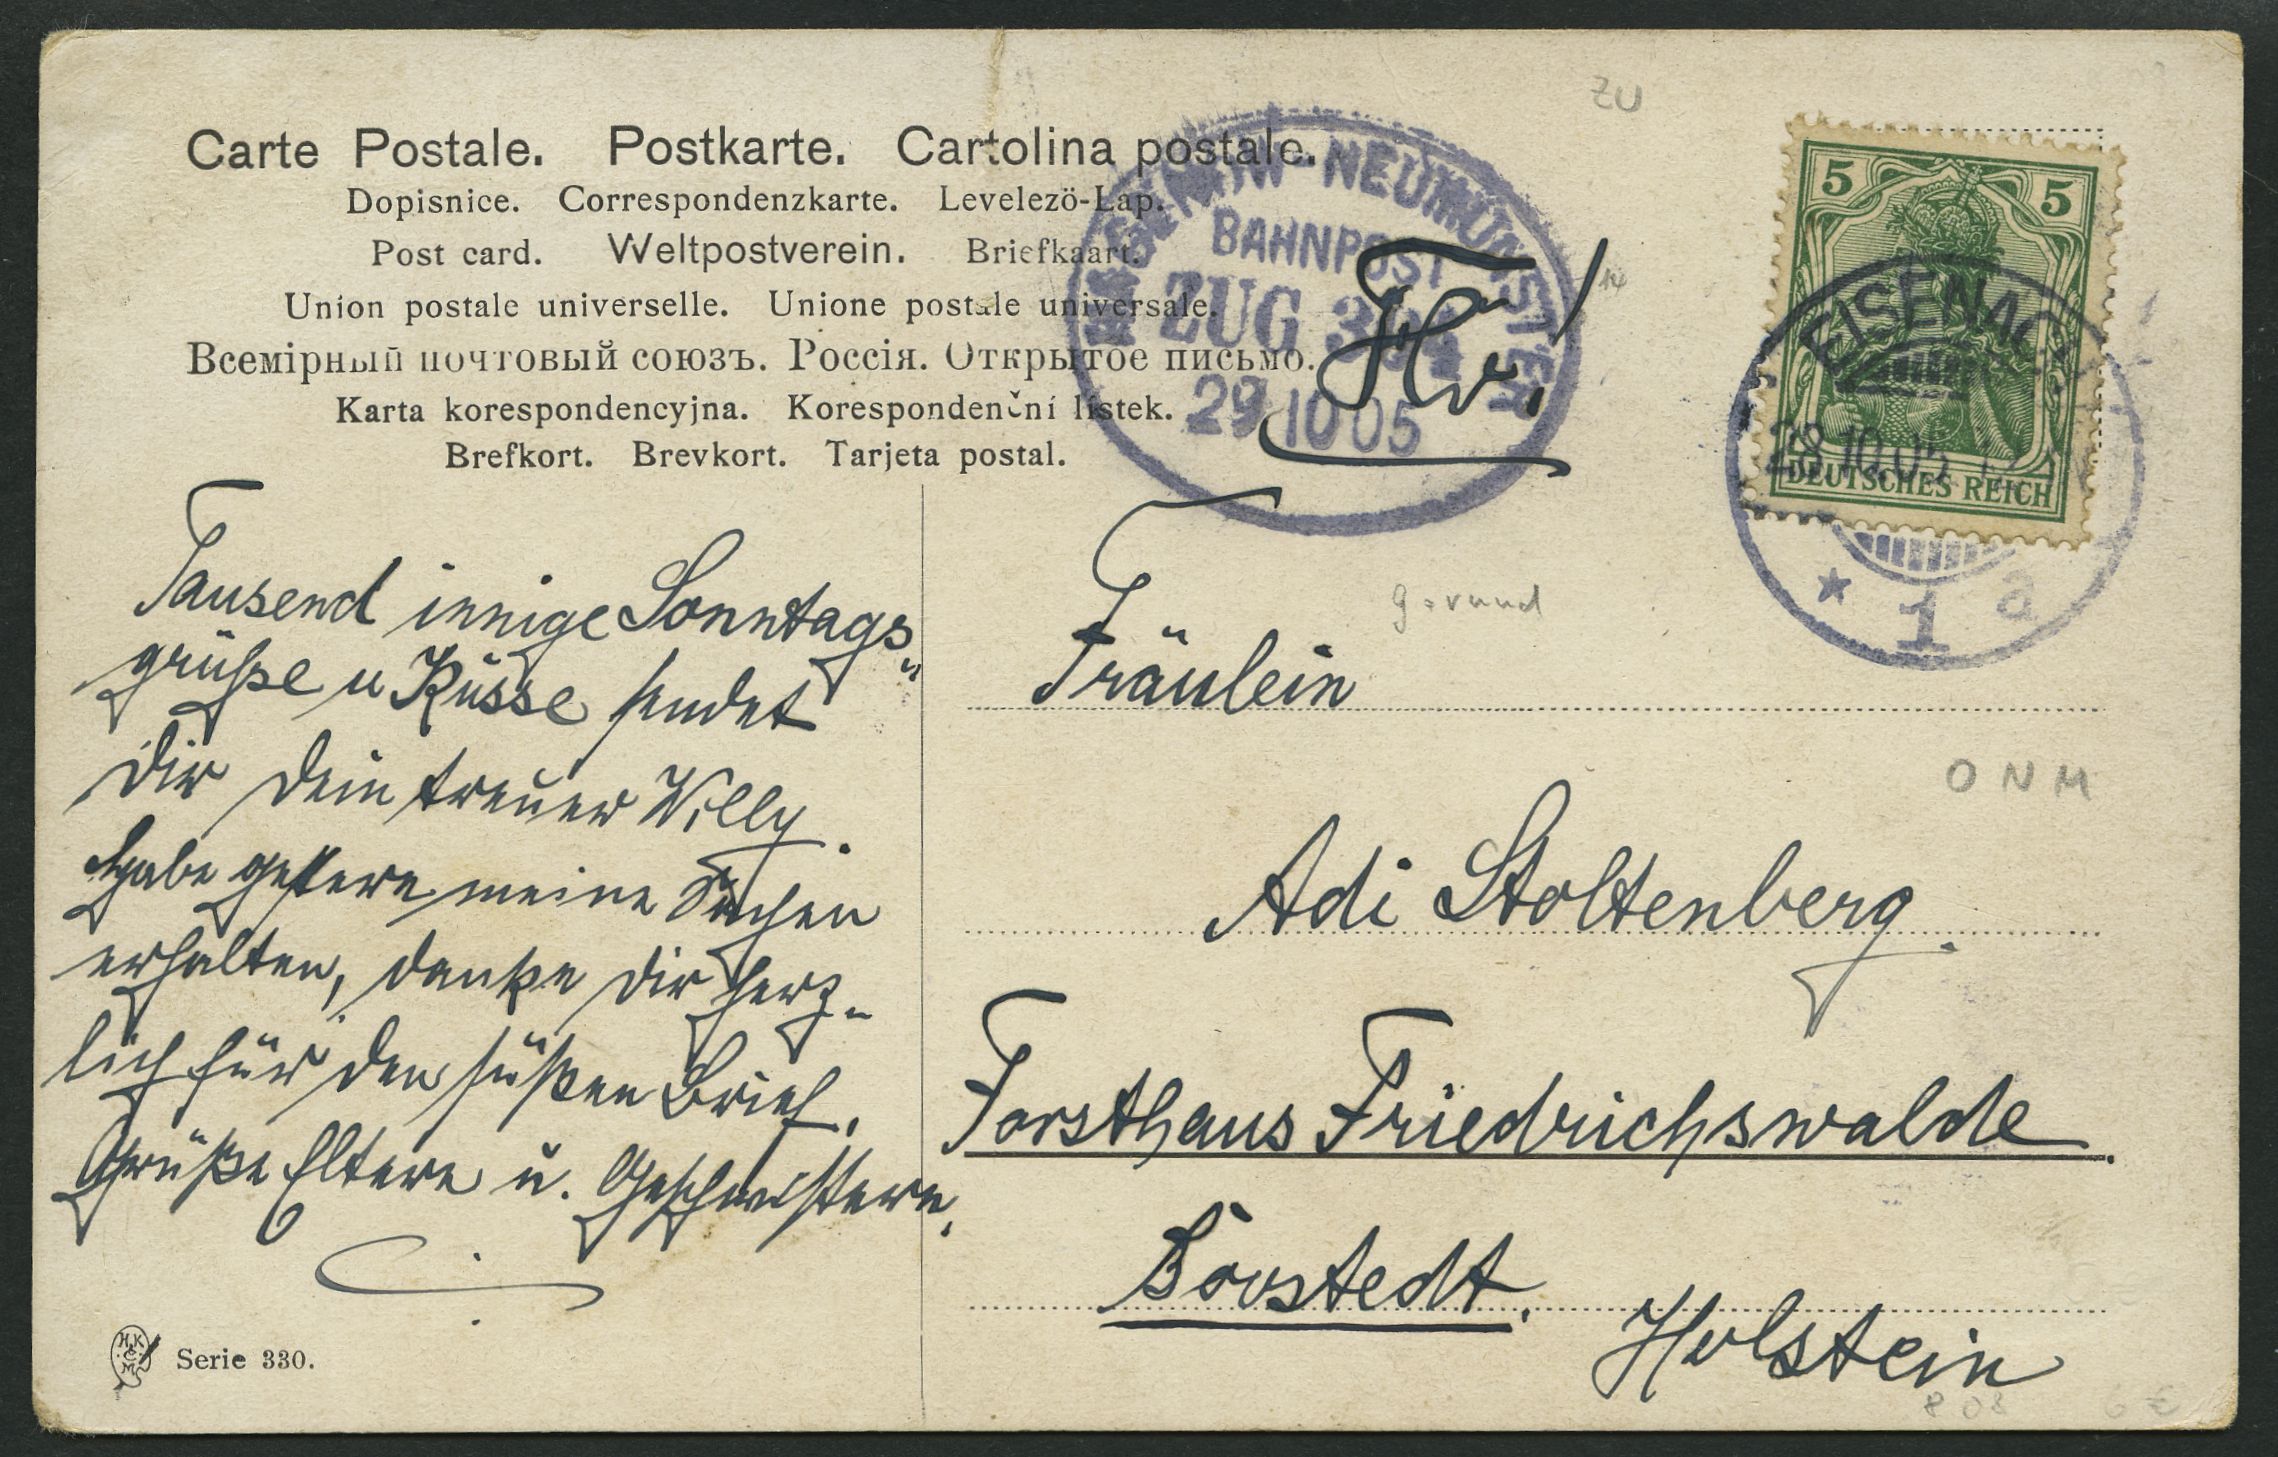 Carte Postale. Postkarte. Cartolina postale.
Dopisnice. Correspondenzkarte. Levelezö-Lap.
Post card. Weltpostverein. Briefkaart.
Union postale universelle. Unione postale universale.
Всемірный почтовый союзъ. Россія. Открытое письмо.
Karta korespondencyjna. Korespondenční lístek.
Brefkort. Brevkort. Tarjeta postal.
HAGENOW-NEUMÜNSTER
BAHNPOST
ZUG 394
29 10 05
ZU
5 5
DEUTSCHES REICH
EISENACH
28.10.05
* 1 a
Tausend innige Sonntags-
grüße u Küsse sendet
Dir Dein treuer Willy.
Habe gestern meine Sachen
erhalten, danke Dir herz-
lich für den süßen Brief.
Grüße Eltern u. Geschwistern.
Serie 330.
Fräulein
O N M
Adi Stoltenberg.
Forsthaus Friedrichswalde.
Holstein
808 6 €